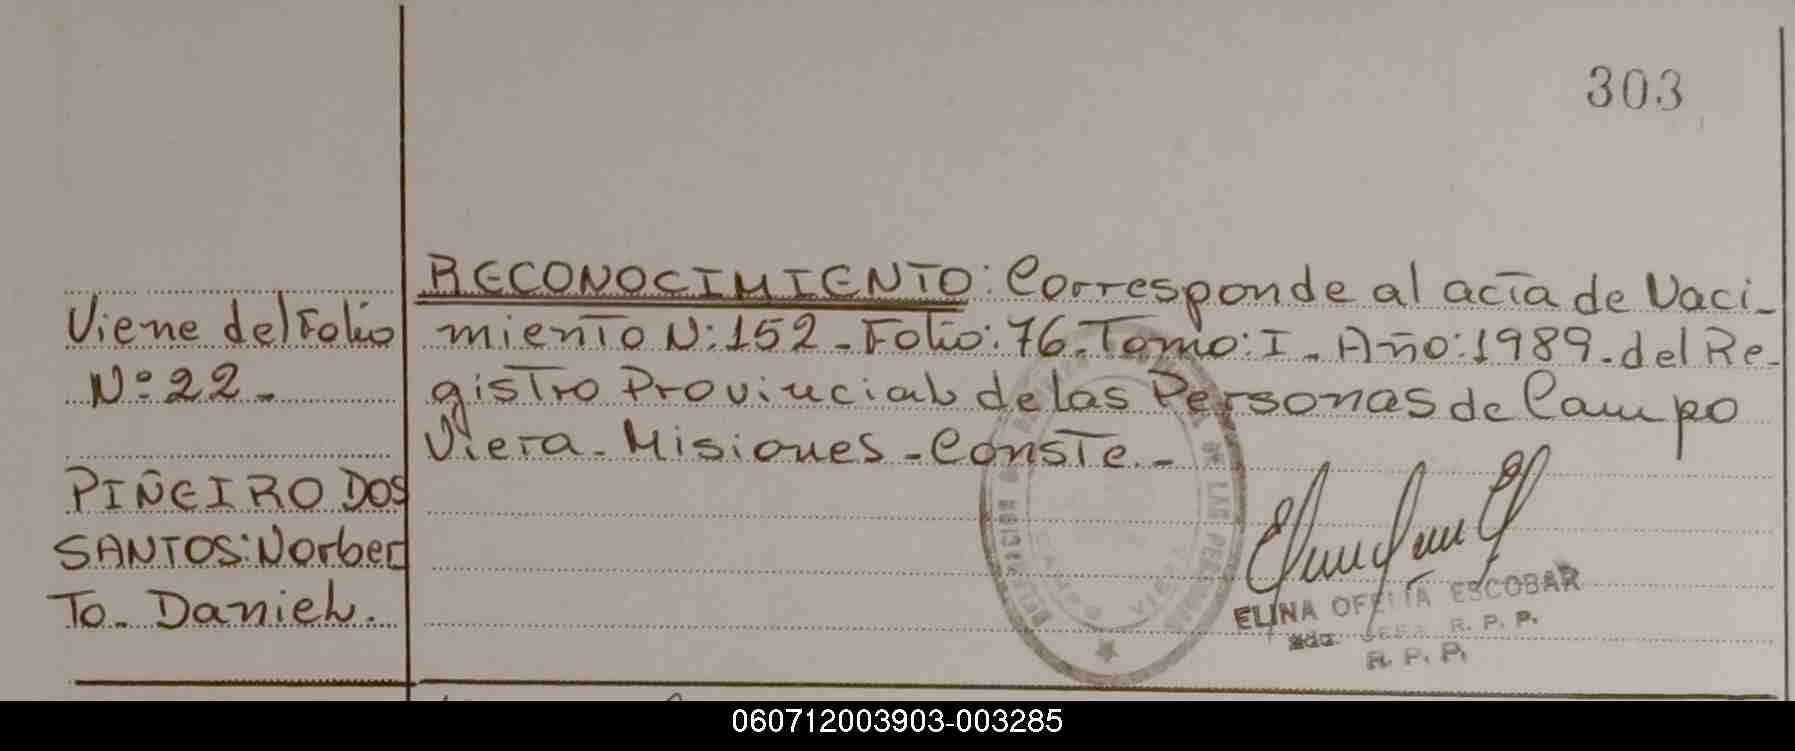 303
Viene del Folio
Nº 22.-
PIÑEIRO DOS
SANTOS: Norber
To. Daniel.
RECONOCIMIENTO: Corresponde al acta de Naci-
miento N: 152 - Folio: 76. Tomo: I - Año: 1989. del Re-
gistro Provincial de las Personas de Campo
Viera - Misiones - Conste.-
DE LAS PERSONAS
CAMPO VIERA
ELINA OFELIA ESCOBAR
2da. JEFA R. P. P.
R. P. P.
060712003903-003285